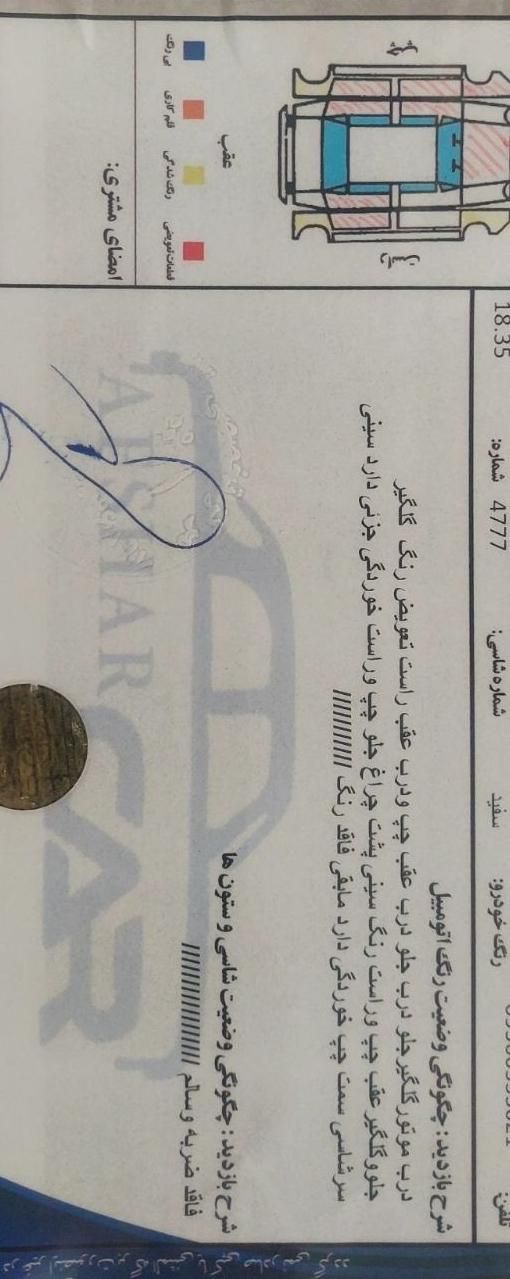 18.35
شماره: 4777
شماره شاسی:
رنگ خودرو: سفید
تلفن:
شرح بازدید: چگونگی وضعیت رنگ اتومبیل
درب موتور گلگیر جلو درب جلو درب عقب چپ ودرب عقب راست تعویض رنگ گلگیر
جلو وگلگیر عقب چپ وراست رنگ سینی پشت چراغ جلو چپ وراست خوردگی جزئی دارد سینی
سرشاسی سمت چپ خوردگی دارد مابقی فاقد رنگ ///////////
شرح بازدید: چگونگی وضعیت شاسی و ستون ها
فاقد ضربه وسالم ////////////////
عقب
بی رنگ
قلم کاری
رنگ شدگی
قطعات تعویضی
امضای مشتری:
AFSHAR
CAR